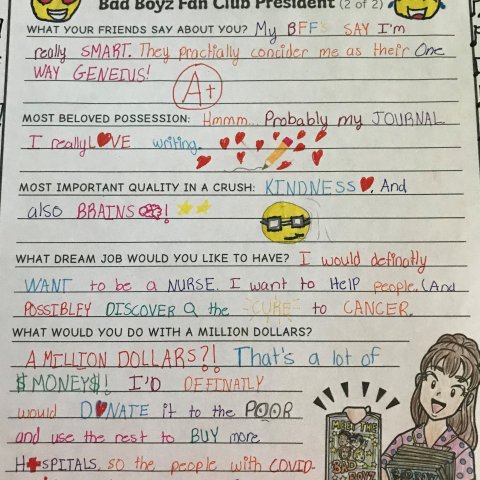 Bad Boyz Fan Club President (2 of 2)
WHAT YOUR FRIENDS SAY ABOUT YOU? My BFFs SAY I'm
really SMART. They practially comcider me as their One
WAY GENEIUS!
A+
MOST BELOVED POSSESSION: Hmmm... Probably my JOURNAL
I really LOVE writing.
MOST IMPORTANT QUALITY IN A CRUSH: KINDNESS, And
also BRAINS!
WHAT DREAM JOB WOULD YOU LIKE TO HAVE? I would definatly
WANT to be a NURSE. I want to HElP people. (And
POSSIBLEY DISCOVER the CURE to CANCER.
WHAT WOULD YOU DO WITH A MILLION DOLLARS?
A MILLION DOLLARS?! That's a lot of
$MONEY$! I'D DEFINATLY
would DONATE it to the POOR
and use the rest to BUY more
HOSPITALS, so the people with COVID-
MEET THE
BAD
BOYZ